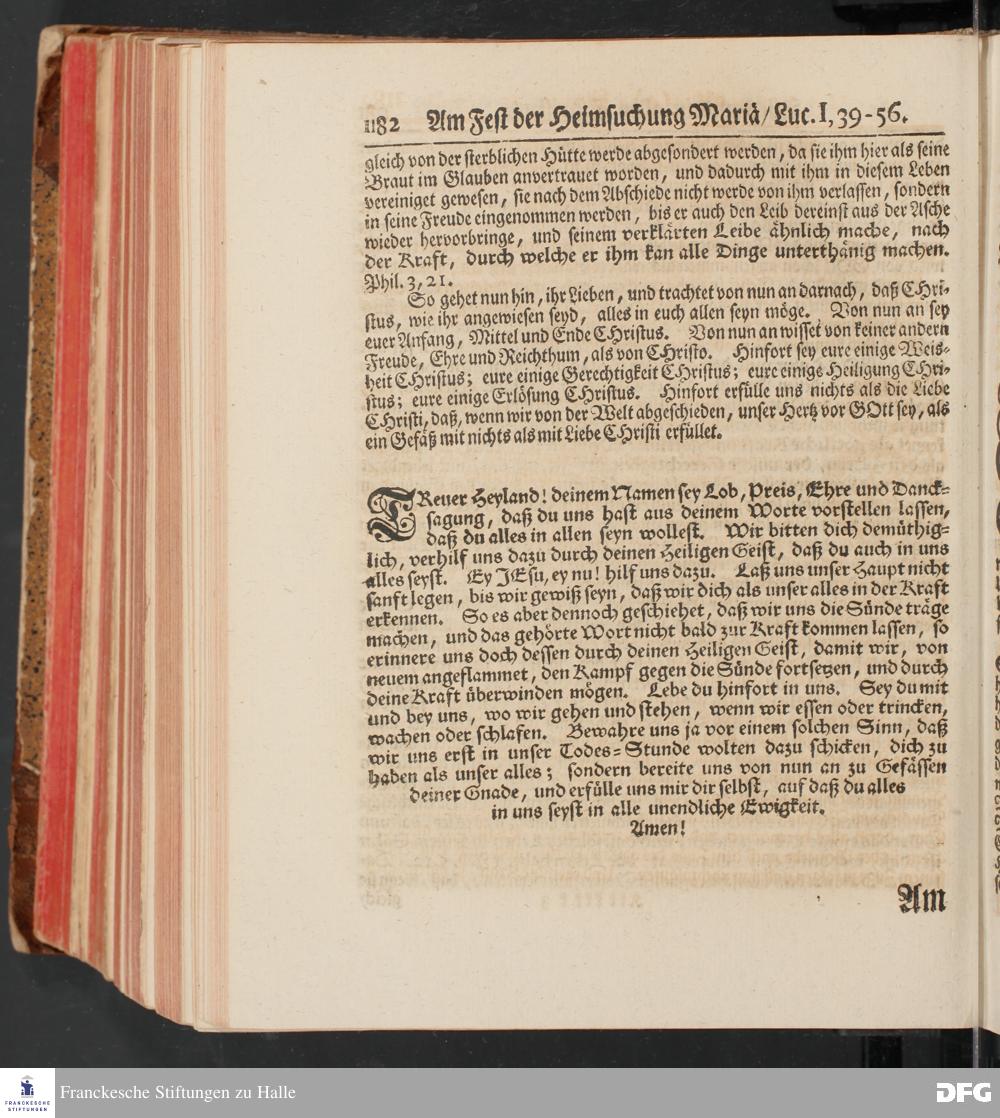 1182 Am Fest der Heimsuchung Mariä/ Luc. I, 39-56.
gleich von der sterblichen Hütte werde abgesondert werden, da sie ihm hier als seine
Braut im Glauben anvertrauet worden, und dadurch mit ihm in diesem Leben
vereiniget gewesen, sie nach dem Abschiede nicht werde von ihm verlassen, sondern
in seine Freude eingenommen werden, bis er auch den Leib dereinst aus der Asche
wieder hervorbringe, und seinem verklärten Leibe ähnlich mache, nach
der Kraft, durch welche er ihm kan alle Dinge unterthänig machen.
Phil. 3, 21.
So gehet nun hin, ihr Lieben, und trachtet von nun an darnach, daß CHri-
stus, wie ihr angewiesen seyd, alles in euch allen seyn möge. Von nun an sey
euer Anfang, Mittel und Ende CHristus. Von nun an wisset von keiner andern
Freude, Ehre und Reichthum, als von CHristo. Hinfort sey eure einige Weis-
heit CHristus; eure einige Gerechtigkeit CHristus; eure einige Heiligung CHri-
stus; eure einige Erlösung CHristus. Hinfort erfülle uns nichts als die Liebe
CHristi, daß, wenn wir von der Welt abgeschieden, unser Hertz vor GOtt sey, als
ein Gefäß mit nichts als mit Liebe CHristi erfüllet.
TReuer Heyland! deinem Namen sey Lob, Preis, Ehre und Danck-
sagung, daß du uns hast aus deinem Worte vorstellen lassen,
daß du alles in allen seyn wollest. Wir bitten dich demüthig-
lich, verhilf uns dazu durch deinen Heiligen Geist, daß du auch in uns
alles seyst. Ey JEsu, ey nu! hilf uns dazu. Laß uns unser Haupt nicht
sanft legen, bis wir gewiß seyn, daß wir dich als unser alles in der Kraft
erkennen. So es aber dennoch geschiehet, daß wir uns die Sünde träge
machen, und das gehörte Wort nicht bald zur Kraft kommen lassen, so
erinnere uns doch dessen durch deinen Heiligen Geist, damit wir, von
neuem angeflammet, den Kampf gegen die Sünde fortsetzen, und durch
deine Kraft überwinden mögen. Lebe du hinfort in uns. Sey du mit
und bey uns, wo wir gehen und stehen, wenn wir essen oder trincken,
wachen oder schlafen. Bewahre uns ja vor einem solchen Sinn, daß
wir uns erst in unser Todes-Stunde wolten dazu schicken, dich zu
haben als unser alles; sondern bereite uns von nun an zu Gefässen
deiner Gnade, und erfülle uns mir dir selbst, auf daß du alles
in uns seyst in alle unendliche Ewigkeit.
Amen!
Am
FRANCKESCHE
STIFTUNGEN
Franckesche Stiftungen zu Halle
DFG